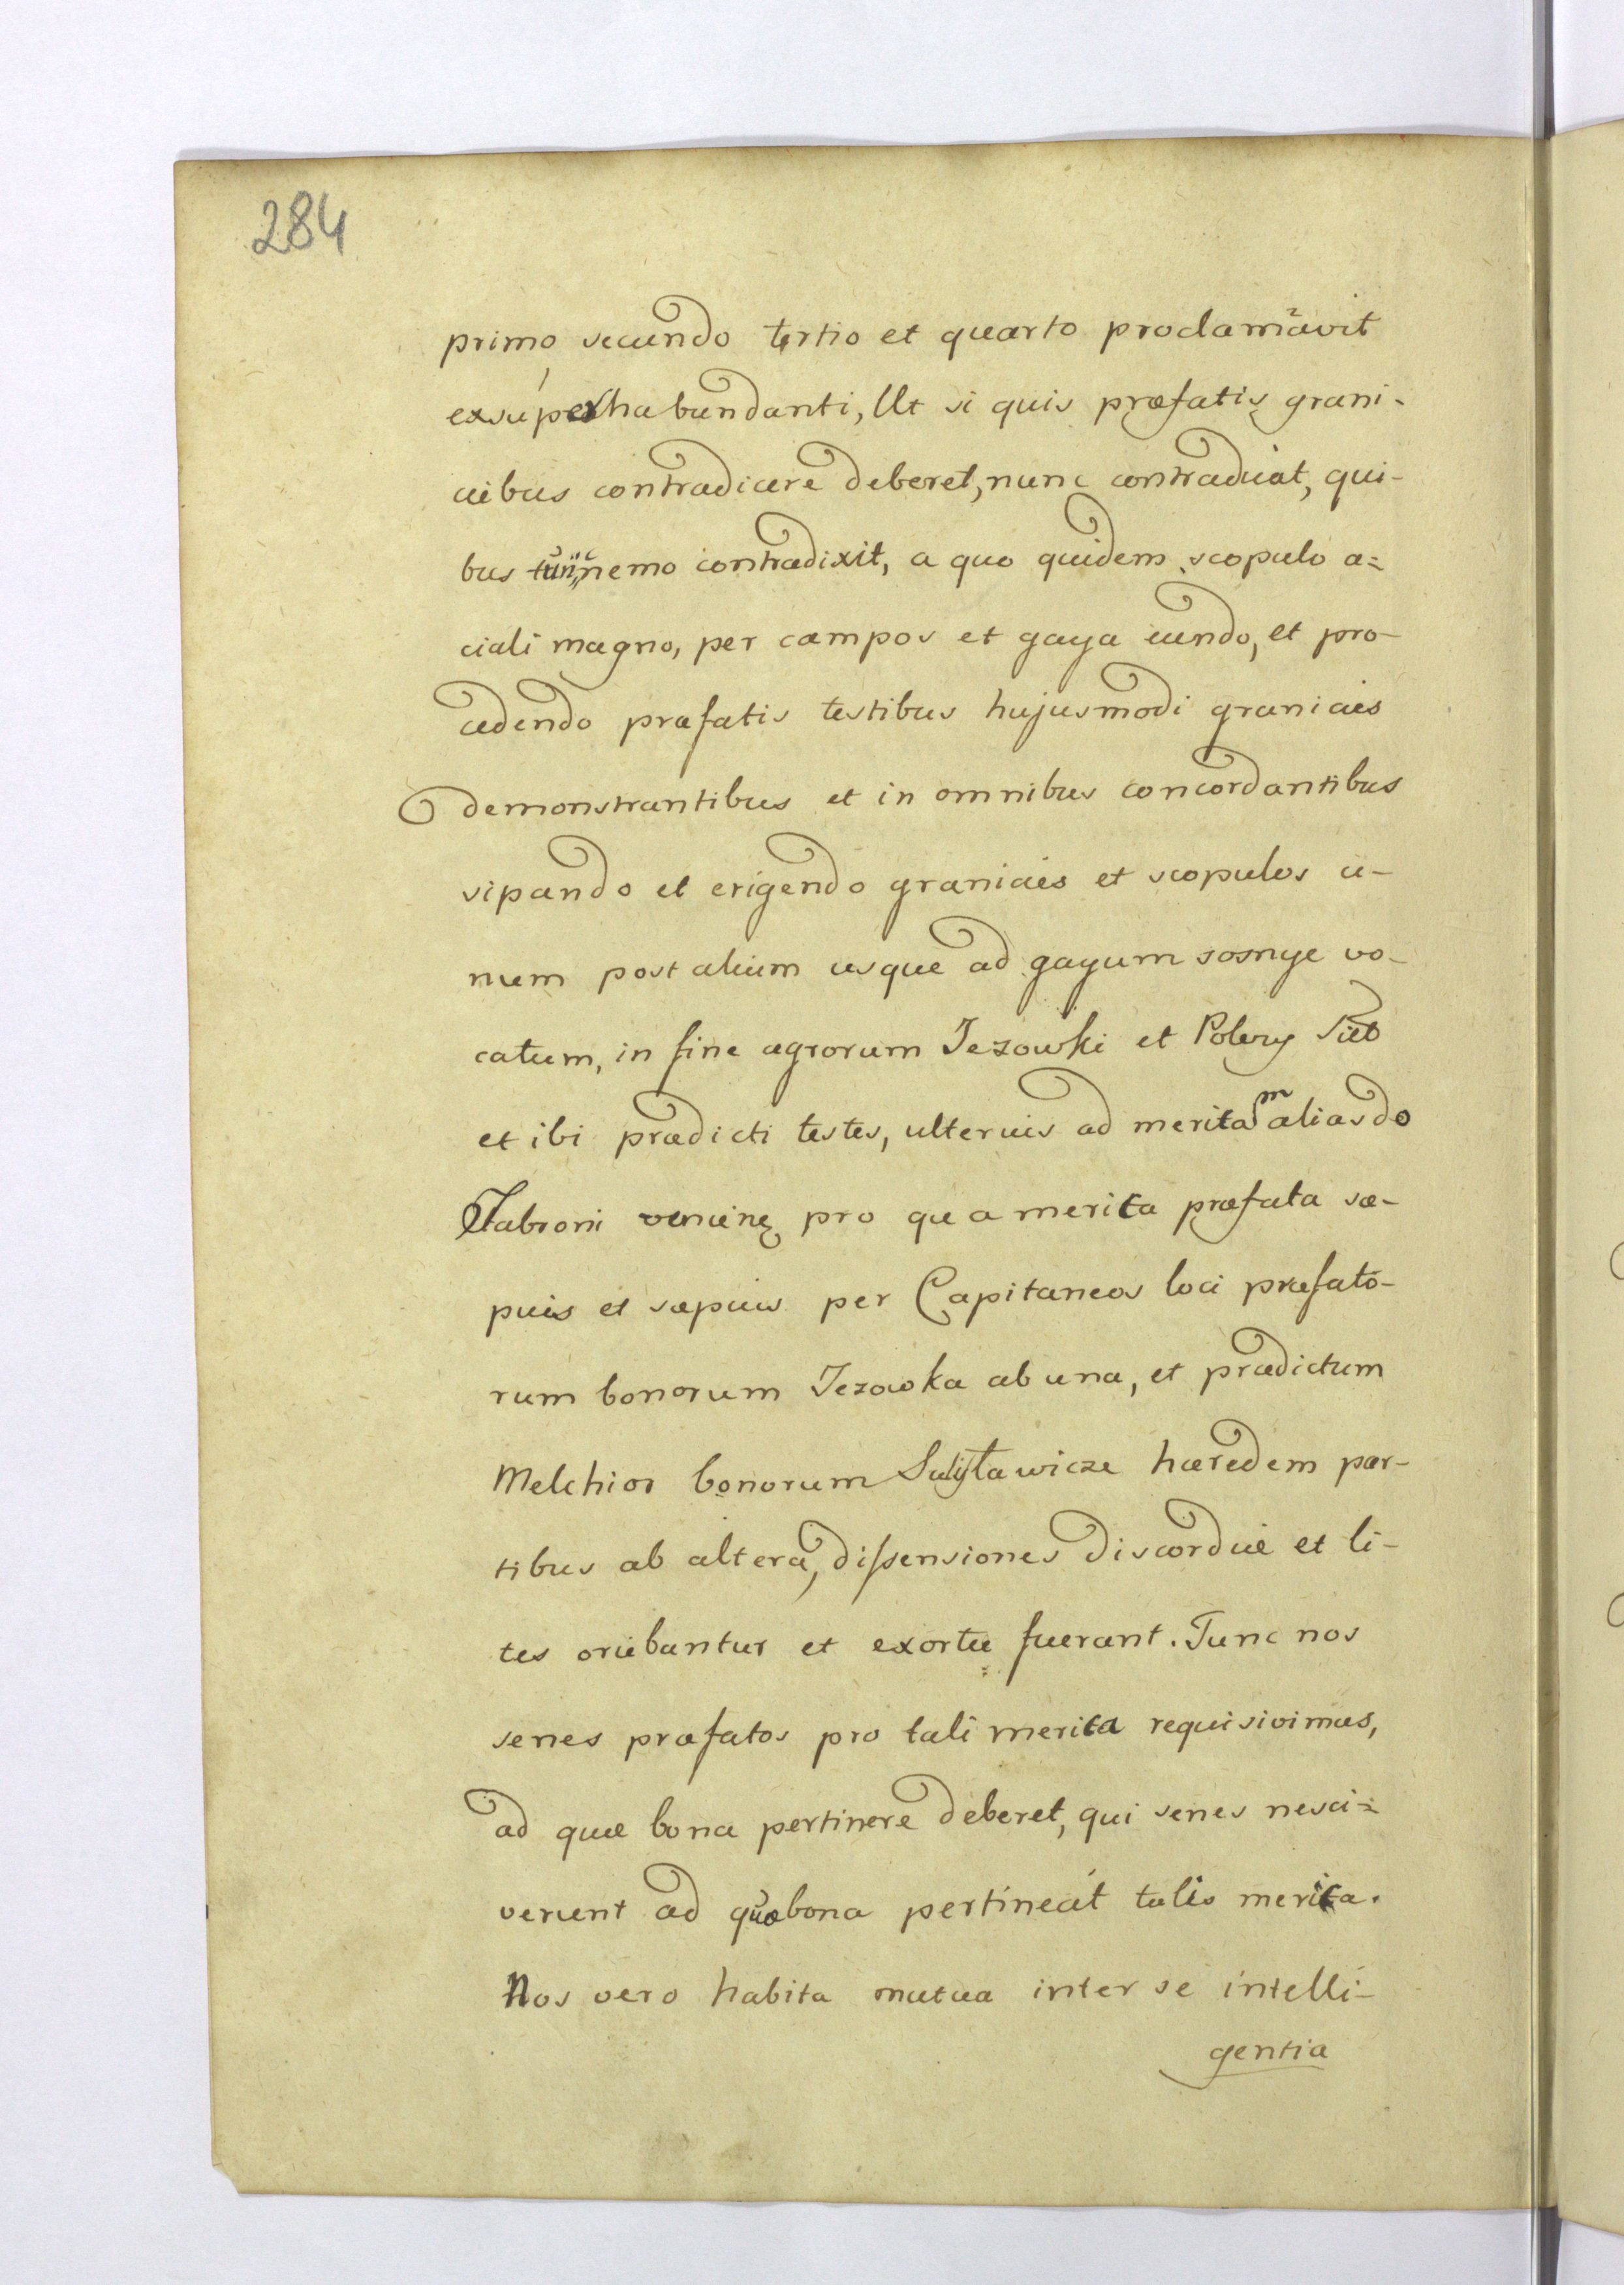 284
primo, secundo tertio et quarto proclamavit
exsuperhabundanti, Ut si quis præfatis grani-
ciebus contradicere deberet, nunc contradicat, qui-
bus nemo contradixit, a quo quidem scopulo a=
ciali magno, per campos et gaya eundo, et pro-
cedendo præfatis testibus hujusmodi granicies
demonstrantibus et in omnibus concordantibus
sipando et erigendo granicies et scopulos u-
num post alium usque ad gayum sosnye vo-
catum, in fine agrorum Jezowski et
et ibi prædicti testes, ulterius ad meritam alias do
pro qua merica præfata sæ-
pius et sæpius per Capitaneos loci præfato-
rum bonorum Jezowka ab una, et prædictum
Melchior bonorum Sulisławicze hæredem par-
tibus ab altera, dissensiones discordiæ et li-
tes oriebantur et exortæ fuerant. Tunc nos
senes præfatos pro tali merica requisivimus,
ad quæ bona pertinere deberet, qui senes nesci=
verunt ad quæ bona pertineat talis merica.
Nos vero habita mutua inter se intelli-
gentia